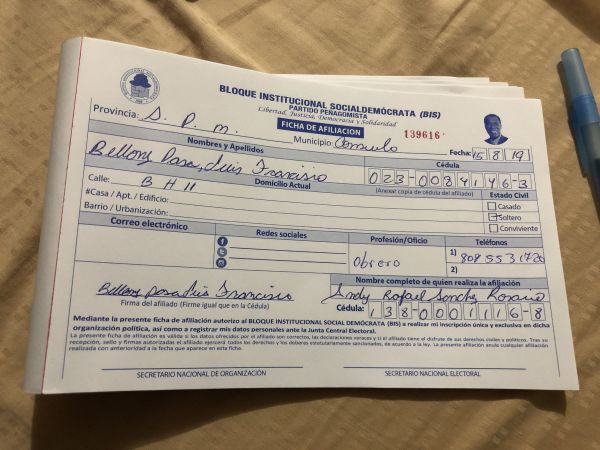 BLOQUE INSTITUCIONAL SOCIALDEMÓCRATA (BIS)
PARTIDO PEÑAGOMISTA
Libertad, Justicia, Democracia y Solidaridad
FICHA DE AFILIACION
139616
Provincia: S. P. M. Municipio: Consuelo Fecha: 15 8 19
Nombres y Apellidos Cédula
Bellony Luis Francisco 023-0084146-3
Domicilio Actual (Anexar copia de cédula del afiliado) Estado Civil
Calle: B H 11
#Casa / Apt. / Edificio:
Barrio / Urbanización:
Casado
Soltero
Conviviente
Correo electrónico Redes sociales Profesión/Oficio Teléfonos
Obrero
1)
2)
Nombre completo de quien realiza la afiliación
Bellony Luis Francisco Rafael Sanchez Rosario
Firma del afiliado (Firme igual que en la Cédula) Cédula: 138-0001116-8
Mediante la presente ficha de afiliación autorizo al BLOQUE INSTITUCIONAL SOCIAL DEMÓCRATA (BIS) a realizar mi inscripción única y exclusiva en dicha
organización política, así como a registrar mis datos personales ante la Junta Central Electoral.
La presente ficha de afiliación es válida si los datos ofrecidos por el afiliado son correctos, las declaraciones veraces y si el afiliado tiene el disfrute de sus derechos civiles y políticos. Tras su
recepción, sello y firmas autorizadas el afiliado ejercerá todos los derechos y los deberes estatutariamente sancionados, de acuerdo a la ley. La presente afiliación anula cualquier afiliación
realizada con anterioridad a la fecha que aparece en esta ficha.
SECRETARIO NACIONAL DE ORGANIZACIÓN SECRETARIO NACIONAL ELECTORAL